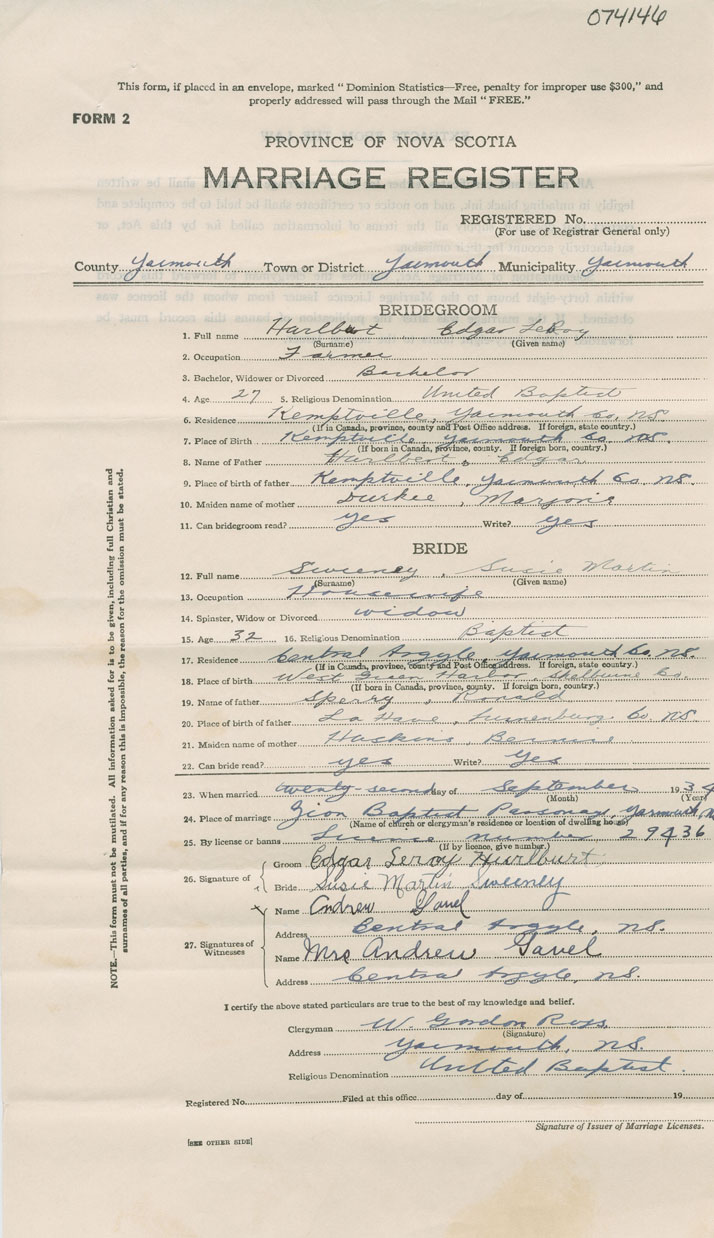 074146
This form, if placed in an envelope, marked " Dominion Statistics—Free, penalty for improper use $300," and
properly addressed will pass through the Mail " FREE."
FORM 2
PROVINCE OF NOVA SCOTIA
MARRIAGE REGISTER
REGISTERED No.
(For use of Registrar General only)
County Yarmouth Town or District Yarmouth Municipality Yarmouth
BRIDEGROOM
1. Full name Hurlburt Edgar LeRoy
(Surname) (Given name)
2. Occupation Farmer
3. Bachelor, Widower or Divorced Bachelor
4. Age 27 5. Religious Denomination United Baptist
6. Residence Kemptville, Yarmouth Co. N.S.
(If in Canada, province, county and Post Office address. If foreign, state country.)
7. Place of Birth Kemptville Yarmouth Co. N.S.
(If born in Canada, province, county. If foreign born, country.)
8. Name of Father Hurlbert, Edgar
9. Place of birth of father Kemptville, Yarmouth Co. N.S.
10. Maiden name of mother Durkee, Marjorie
11. Can bridegroom read? yes Write? yes
BRIDE
12. Full name Sweeney, Susie Martin
(Surname) (Given name)
13. Occupation Housewife
14. Spinster, Widow or Divorced widow
15. Age 32 16. Religious Denomination Baptist
17. Residence Central Argyle, Yarmouth Co. N.S.
(If in Canada, province, county and Post Office address. If foreign, state country.)
18. Place of birth West Green Harbor, Shelburne Co.
(If born in Canada, province, county. If foreign born, country.)
19. Name of father Sperry, Ronald
20. Place of birth of father La Have, Lunenburg Co. N.S.
21. Maiden name of mother Huskins, Bennie
22. Can bride read? yes Write? Yes
23. When married twenty-second day of September 1934
(Month) (Year)
24. Place of marriage Zion Baptist Parsonage, Yarmouth, N
(Name of church or clergyman's residence or location of dwelling house)
25. By license or banns License number 29436
(If by licence, give number.)
26. Signature of
Groom Edgar Leroy Hurlburt
Bride Susie Martin Sweeney
27. Signatures of Witnesses
Name Andrew Gavel
Address Central Argyle, N.S.
Name Mrs Andrew Gavel
Address Central Argyle, N.S.
I certify the above stated particulars are true to the best of my knowledge and belief.
Clergyman W. Gordon Ross
(Signature)
Address Yarmouth, N.S.
Religious Denomination United Baptist.
Registered No. Filed at this office day of 19
Signature of Issuer of Marriage Licenses.
[SEE OTHER SIDE]
NOTE.—This form must not be mutilated. All information asked for is to be given, including full Christian and
surnames of all parties, and if for any reason this is impossible, the reason for the omission must be stated.